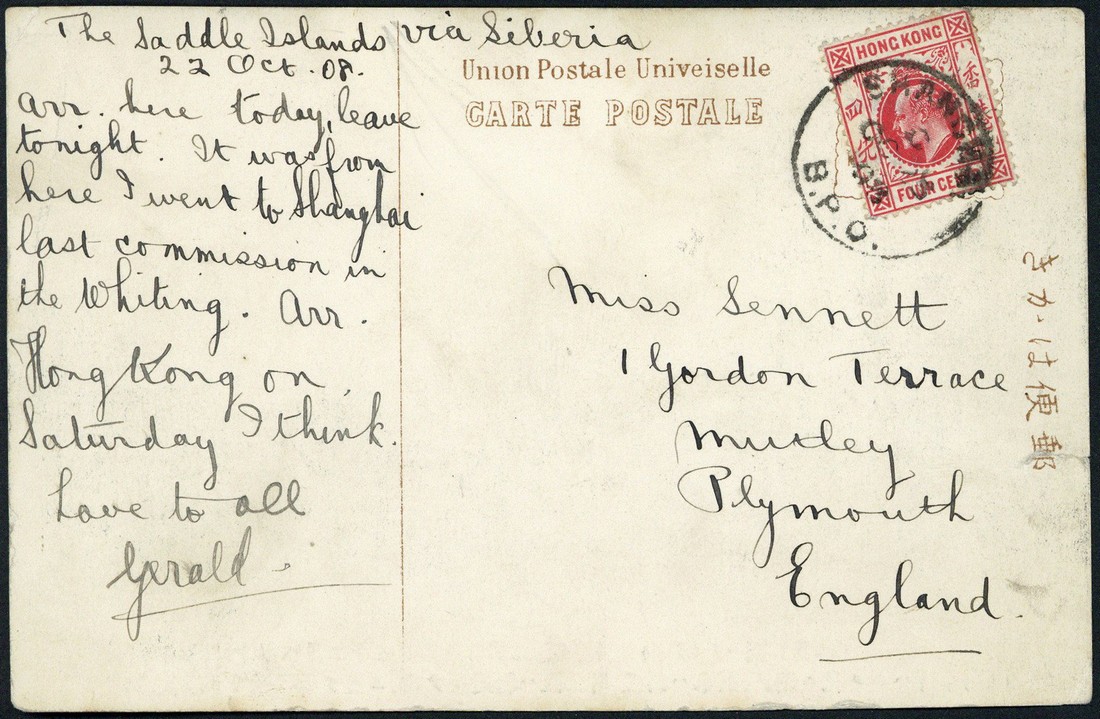 The Saddle Islands via Siberia
22 Oct. 08.
Arr. here today, leave
tonight. It was from
here I went to Shanghai
last commission in
the Whiting. Arr.
Hong Kong on
Saturday I think.
Love to all
Gerald.
Union Postale Univeiselle
CARTE POSTALE
HONG KONG
香港
四先
FOUR CEN
SHANGHAI
B.P.O.
Miss Sennett
1 Gordon Terrace
Mutley
Plymouth
England.
きかは便郵